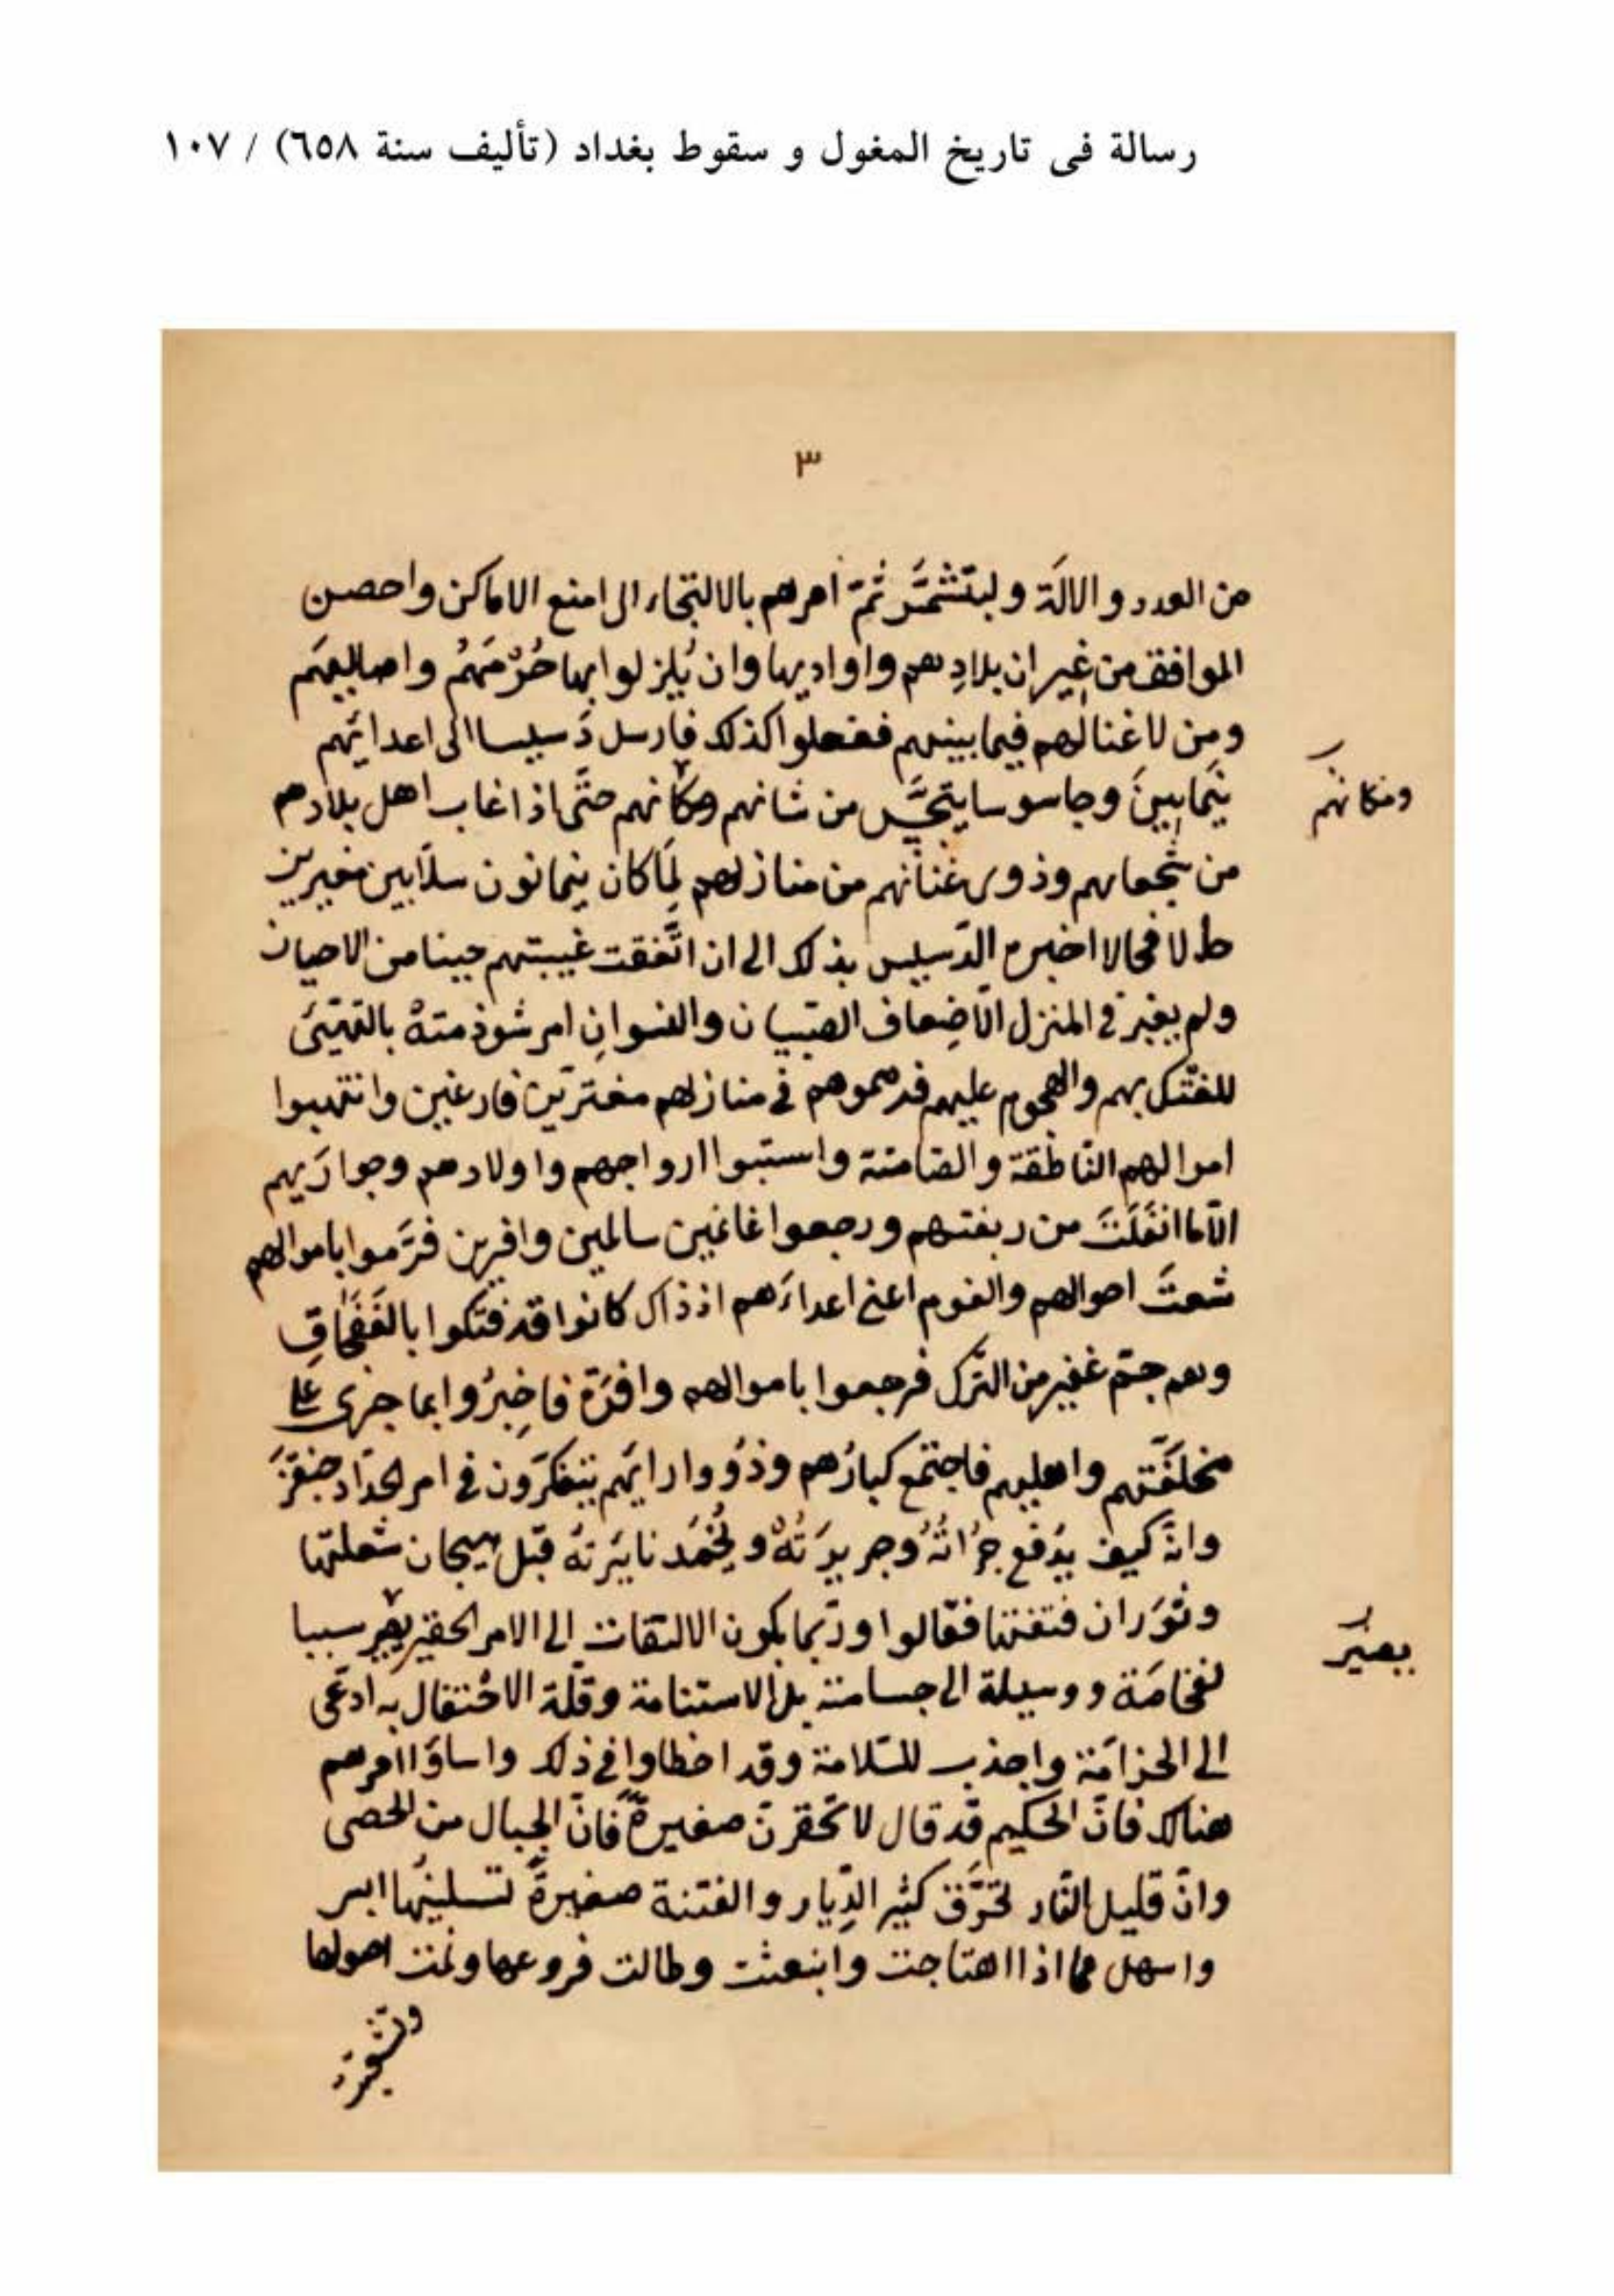 رسالة فى تاريخ المغول و سقوط بغداد (تأليف سنة ٦٥٨) / ١٠٧
٣
من العدد والالَة وليتشمَّر ثمّ امرهم بالالتجاء الى امنع الاماكن واحصن
الموافق من غيران بلادِهم واواديها وان يُلزلوا بها حُرَمَهُم واصاليعهَم
ومِن لاغنا لهم فيما بينهم ففعلوا كذلك فارسل دَسيسا الى اعدائهم
يَنمابينَ وجاسوسا يتجسَّس من شانهم ومكانهم حتَّى اذا غاب اهل بلادهم
ومكانهم
من شجعانهم وذوى غنائهم من منازلهم لِمَا كان ينمانون سلّابين مغيرين
طلا فحالا اخبره الدّسيس بذلك الى ان اتَّفقت غيبتهم حينا من الاحيان
ولم يغبر فى المنزل الّا ضِعاف الصّبيان والنسوانِ امر شرذمتهُ بالتهيّئ
للفتك بهم والهجوم عليهم فدهموهم فى منازلهم مغترّين فارغين وانتهبوا
اموالهم النّاطقة والصّامتة واستبوا ازواجهم واولادهم وجوارَيهم
الّا ما انفَلَتَ من ربقتهم ورجعوا غانمين سالمين وافرين فرَمّوا باموالهم
شعثَ احوالهم والقوم اعنى اعداءَهم اذ ذاك كانوا قد فتكوا بالقَفجَاقِ
وهم جمّ غفير من الترك فرجعوا باموالهم وافرَة فاخبِرُوا بما جرى على
مخلَفّتهم واهليهم فاجتمع كبارُهم وذوُوا ارائهَم يتفكرّون فى امر الحدّاد جنقزَ
وانّه كيف يدفع جُراتُهُ وجريرَتُهُ ويُخمَد نايَرتهُ قبل هيجان شعلتها
وثوَران فتنتها فقالوا وربّما يكون الالتفات الى الامر الحقير يصير سببا
بصير
لفخامَة ووسيلة الى جسامته بل الاستنامة وقلّة الاحتفال به ادعَى
الى الحزامَة واجذب للسّلامة وقد اخطاوا فى ذلك واساؤا امرهم
هناك فانّ الحكيم قد قال لا تحقرنّ صغيرةً فانّ الجبال من الحصى
وانّ قليل النّار تحرّق كثير الدِّيار والفتنة صغيرةً
واسهل مما اذا اهتاجت وانبعثت وطالت فروعها ونمت اصولها